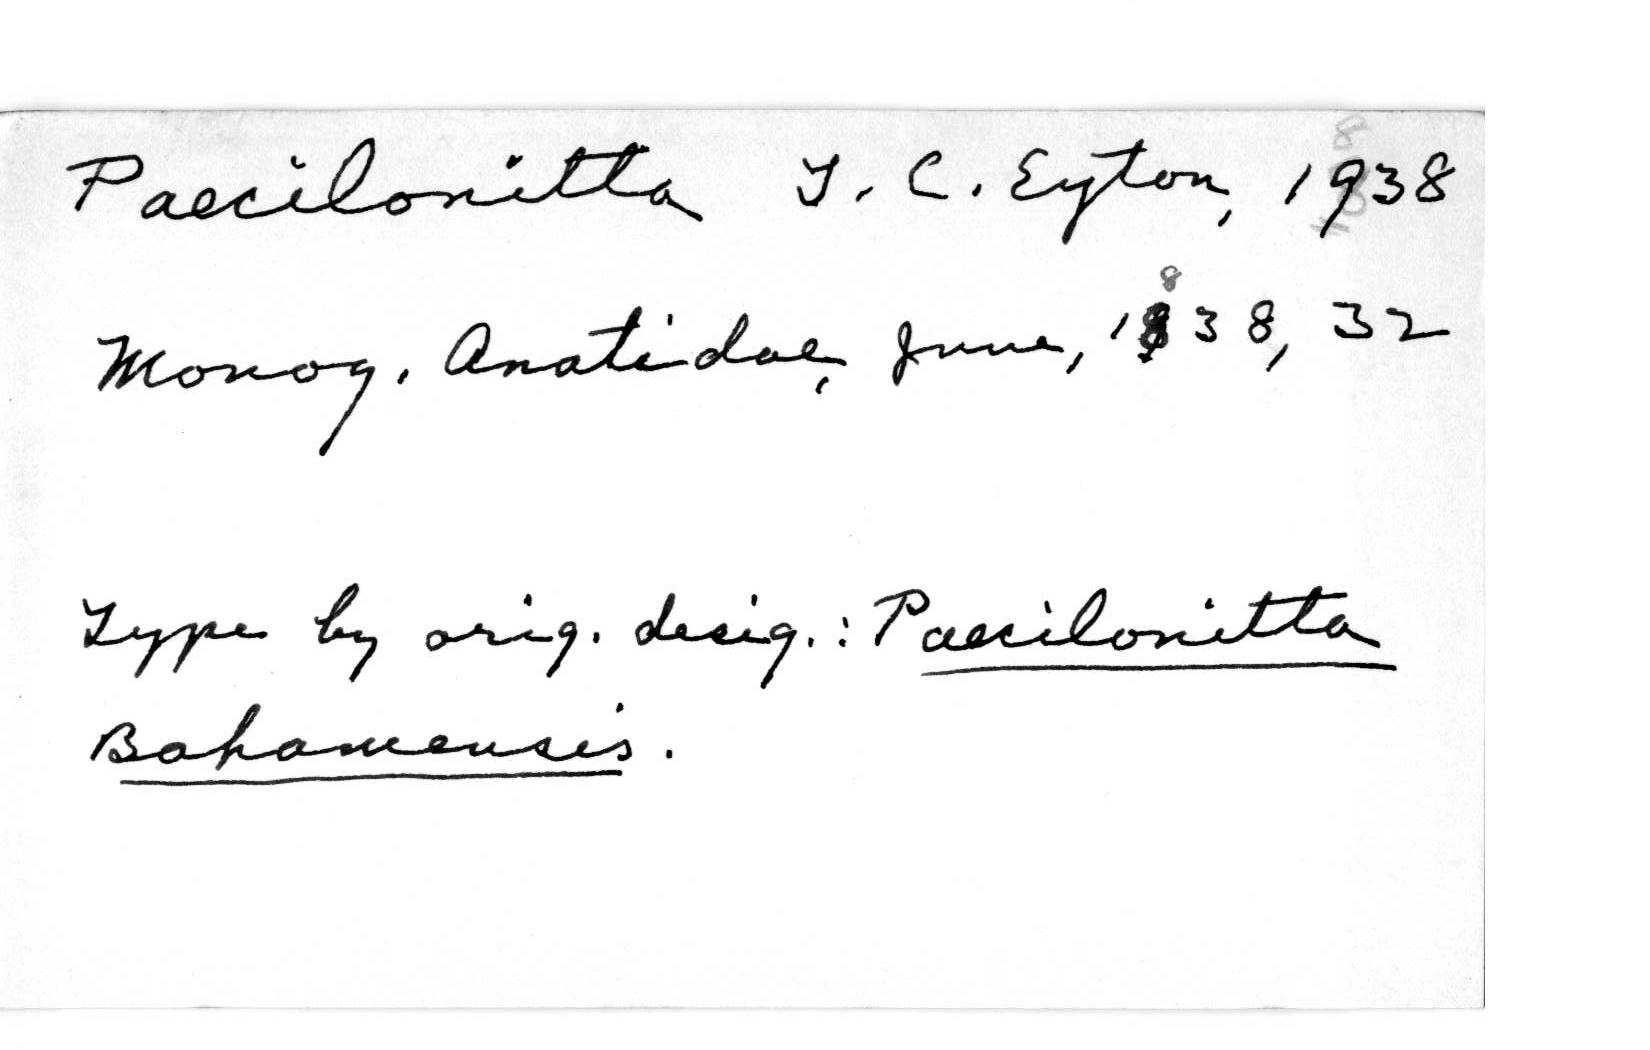 Paecilonitta T. C. Eyton, 1938
8
Monog. Anatidae, June, 1838, 32
Type by orig. desig.: Paecilonitta
Bahamensis.